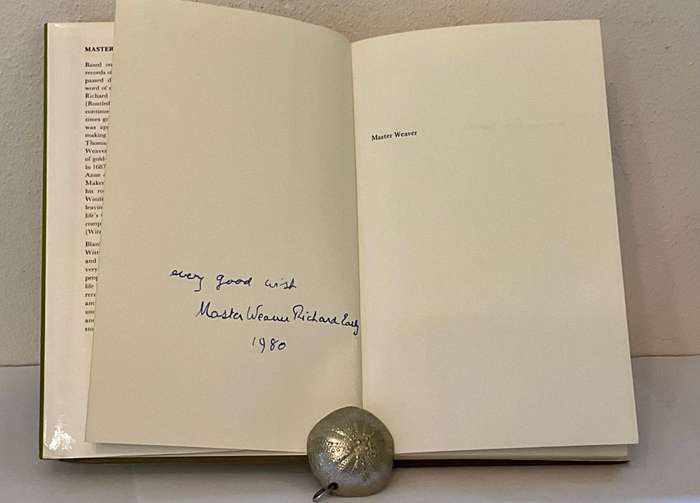 MASTER
Based on
records of
passed d
word of
Richard
(Routled
continue
times gr
was app
making
Thomas
Weaver
of gold
in 1687
Anne
Maker
his ro
Windi
leavin
life's
comp
(Wit
Blan
Witn
and
very
peop
life
rece
and
und
and
sto
every good wish
Master Weaver Richard Early
1980
Master Weaver